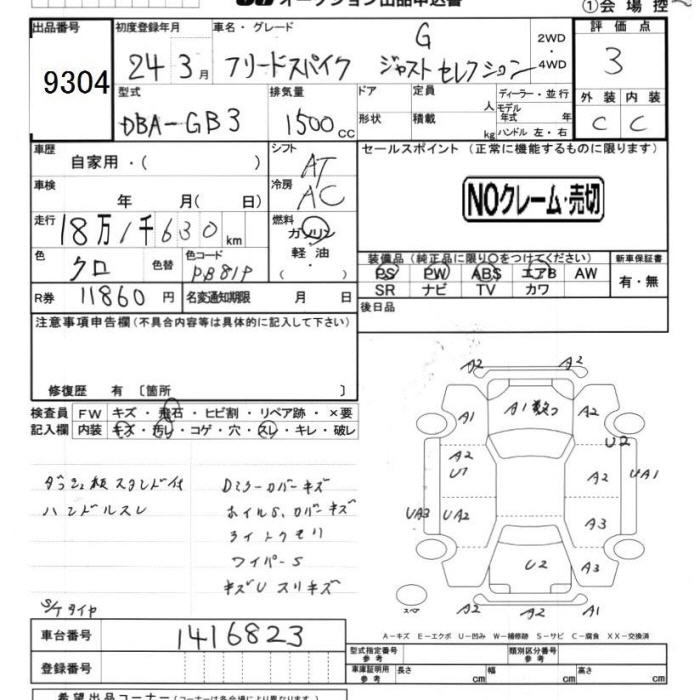 オークション出品申込書 ①会場控
出品番号 初度登録年月 車名・グレード 2WD・4WD 評価点
9304 24年3月 フリードスパイク G ジャストセレクション 3
型式 排気量 ドア 定員 人 ディーラー・並行 外装 内装
DBA-GB3 1500cc 形状 積載 kg モデル年式 年 ハンドル 左・右 C C
車歴 自家用・( ) シフト AT セールスポイント(正常に機能するものに限ります)
車検 年 月( 日) 冷房 AC NOクレーム・売切
走行 18万1千630km 燃料 ガソリン
軽油・( )
色 クロ 色替 色コード PB81P 装備品(純正品に限り○をつけてください) 新車保証書
PS PW ABS エアB AW 有・無
SR ナビ TV カワ
R券 11860円 名変通知期限 月 日 後日品
注意事項申告欄(不具合内容等は具体的に記入して下さい)
修復歴 有〔箇所 〕
検査員 FW キズ・飛石・ヒビ割・リペア跡・×要
記入欄 内装 キズ・汚レ・コゲ・穴・スレ・キレ・破レ
A2 A2
A1 A1数コ A2
U2
A2
U1 A2 UA1
UA3 UA2 A3
U2 A3
スペア A2 A2 A1
ダッシュ板スタンド付
ハンドルスレ
Dミラーカバーキズ
ホイルS、カバーキズ
ライトクモリ
ワイパーS
キズUスリキズ
S/Tタイヤ
A-キズ E-エクボ U-凹み W-補修跡 S-サビ C-腐食 XX-交換済
車台番号 1416823
型式指定番号 参考 類別区分番号 参考
登録番号 車庫証明用 参考 長さ cm 幅 cm 高さ cm
希望出品コーナー(コーナーは各会場により異なります)